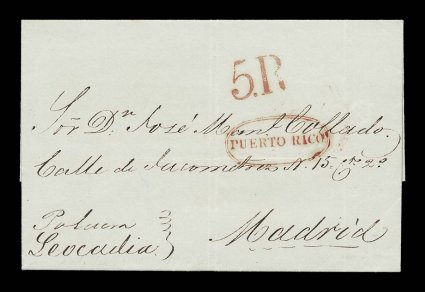 5.R
Sor. Dn. José Manl. Collado.
PUERTO RICO
Calle de Jacometrezo N. 15. Cto. 2º
Polacra
Leocadia
Madrid